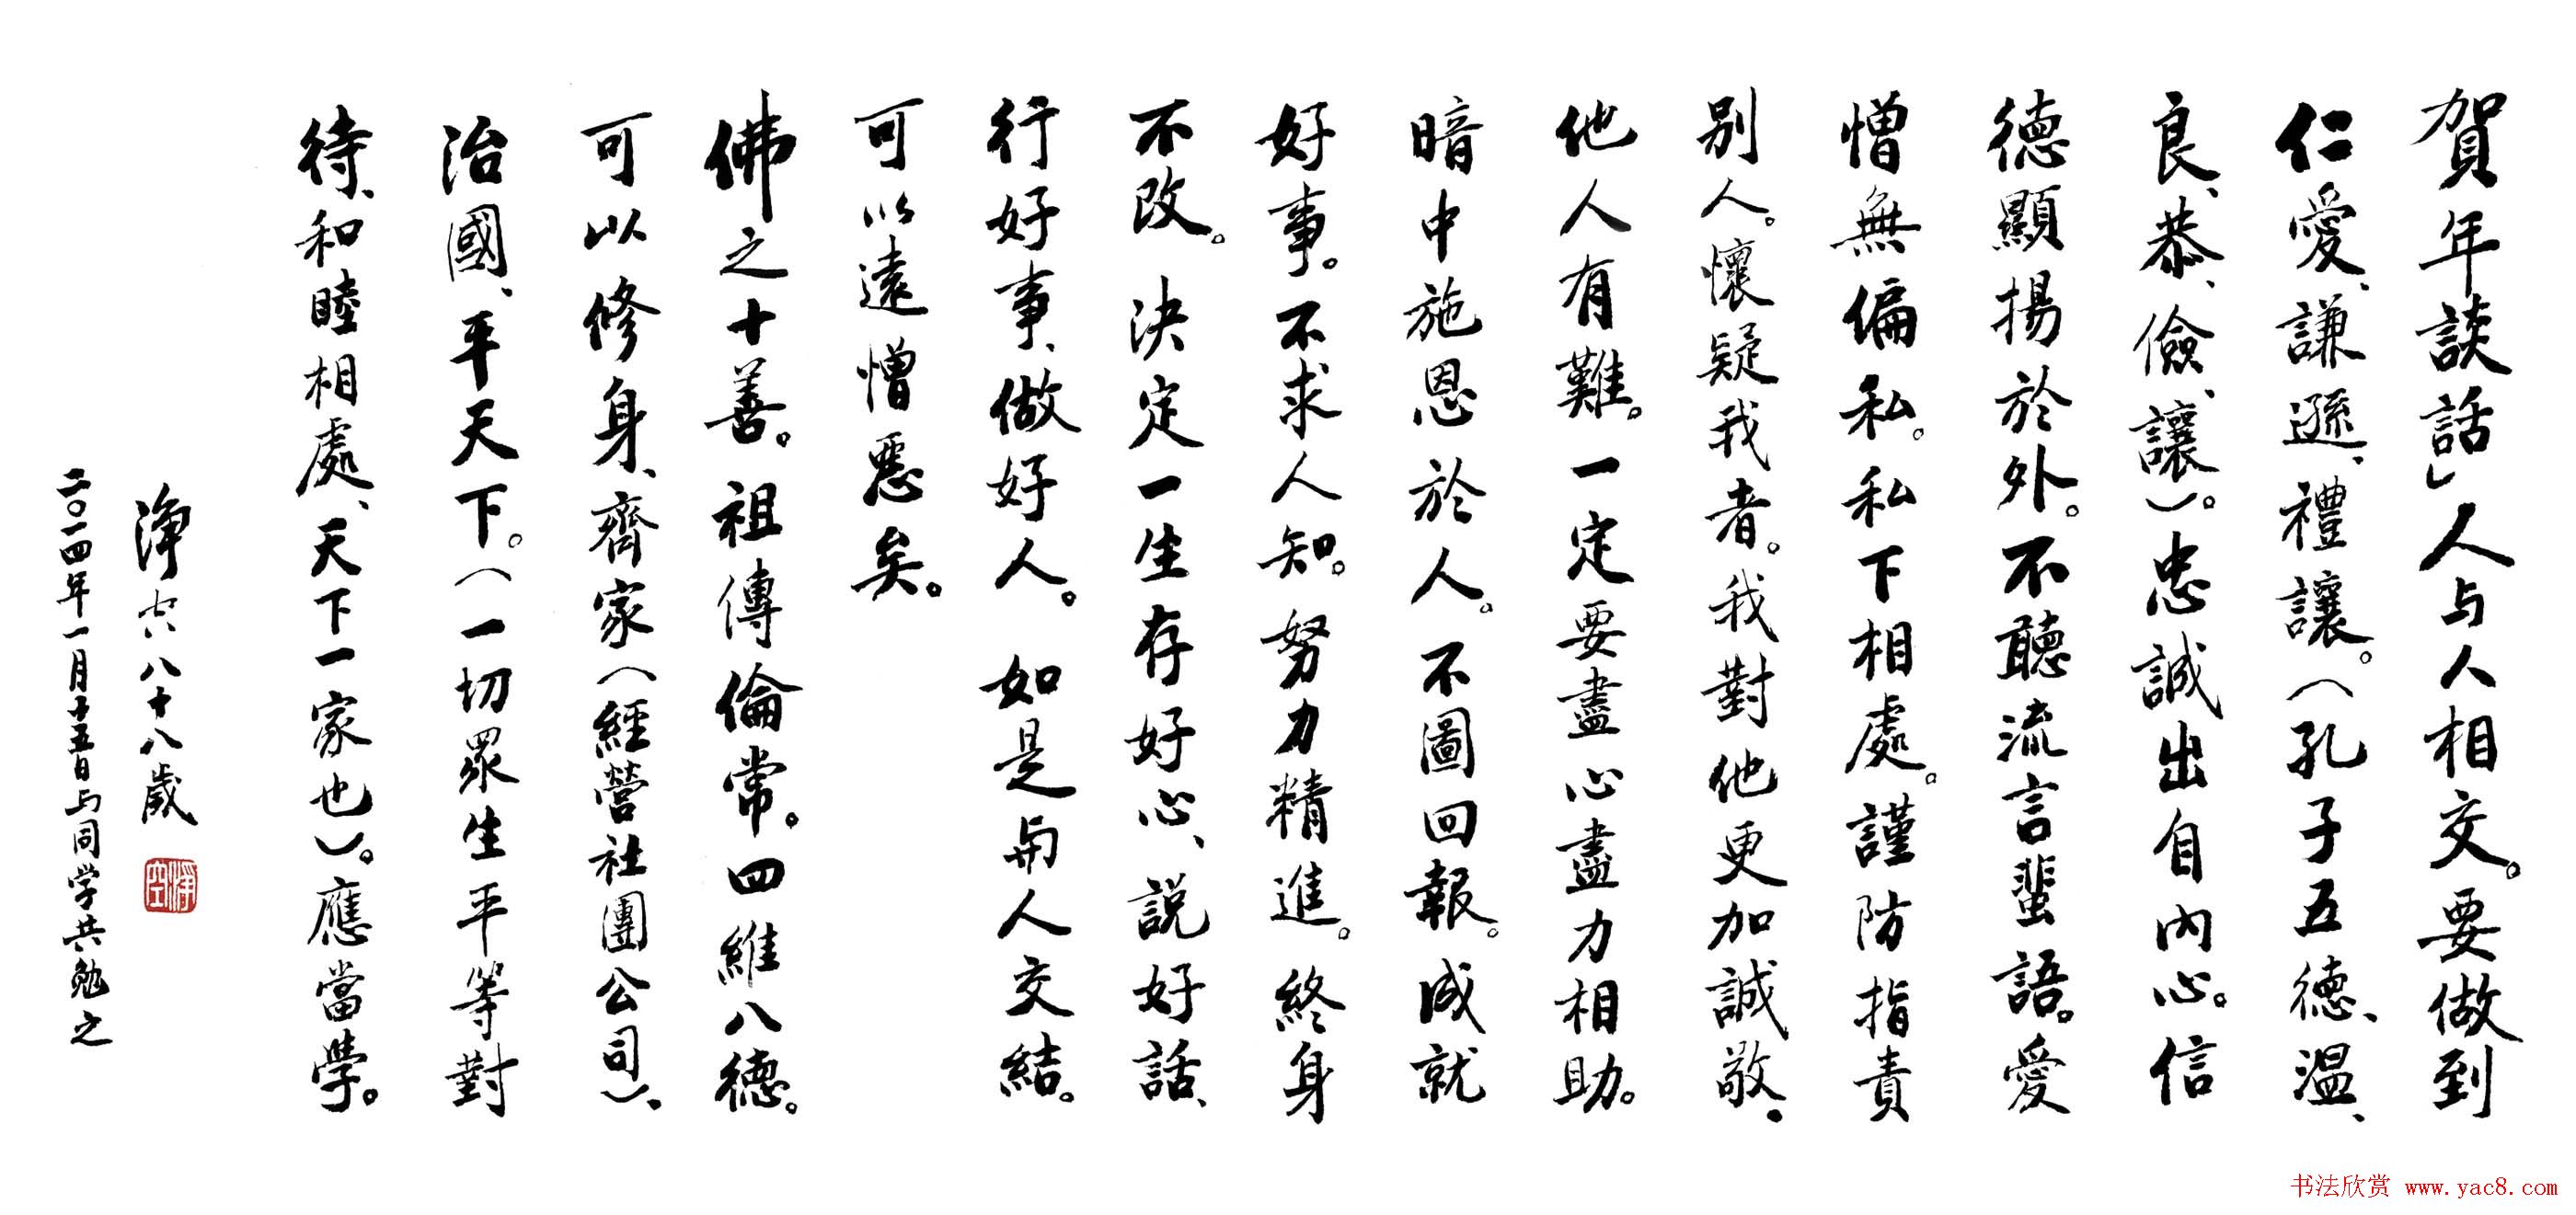 賀年談話」人与人相交。要做到
仁愛、謙遜、禮讓。（孔子五德、溫、
良、恭、儉、讓）。忠誠出自內心。信
德顯揚於外。不聽流言蜚語。愛
憎無偏私。私下相處。謹防指責
別人。懷疑我者。我對他更加誠敬、
他人有難。一定要盡心盡力相助。
暗中施恩於人。不圖回報。成就
好事。不求人知。努力精進。終身
不改。決定一生存好心、說好話、
行好事、做好人。如是与人交結。
可以遠憎惡矣。
佛之十善。祖傳倫常。四維八德。
可以修身、齊家（經營社團公司）、
治國、平天下。（一切眾生平等對
待、和睦相處、天下一家也）。應當學。
淨空八十八歲
淨空
二〇一四年一月十五日与同学共勉之
书法欣赏 www.yac8.com